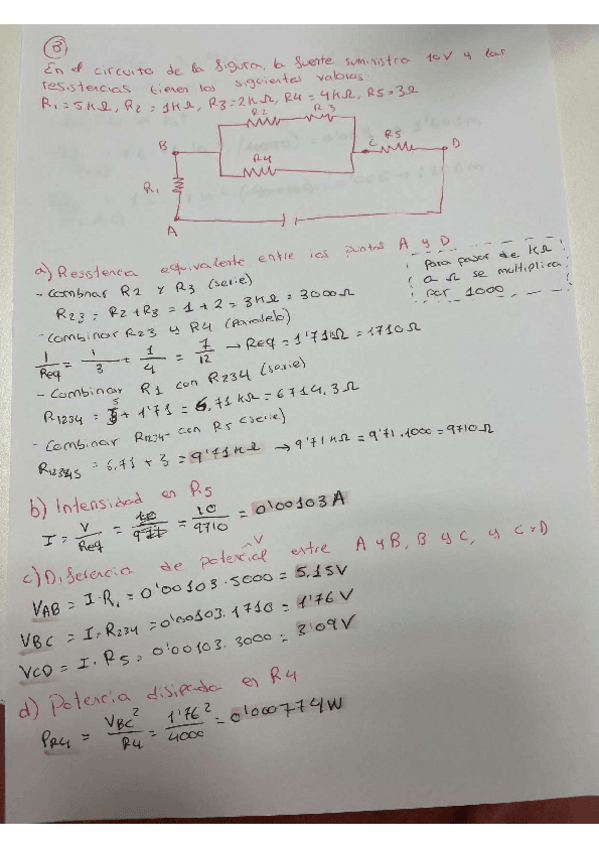 3
En el circuito de la figura, la fuente suministra 10V y las
resistencias tienen los siguientes valores:
R1 = 5KΩ, R2 = 1KΩ, R3 = 2KΩ, R4 = 4KΩ, R5 = 3Ω
R2 R3
B R4 C R5 D
R1
A
a) Resistencia equivalente entre los puntos A y D
- Combinar R2 y R3 (serie)
R23 = R2 + R3 = 1 + 2 = 3KΩ = 3000Ω
Para pasar de KΩ
a Ω se multiplica
por 1000
- Combinar R23 y R4 (Paralelo)
1/Req = 1/3 + 1/4 = 7/12 → Req = 1'71KΩ = 1710Ω
- Combinar R1 con R234 (serie)
R1234 = 5 + 1'71 = 6,71 KΩ = 6714,3 Ω
- Combinar R1234 con R5 (serie)
R12345 = 6,71 + 3 = 9'71 KΩ → 9'71 KΩ = 9'71 . 1000 = 9710Ω
b) Intensidad en R5
I = V/Req = 10/971 = 10/9710 = 0'00103 A
c) Diferencia de potencial V entre A y B, B y C, y C y D
VAB = I · R1 = 0'00103 · 5000 = 5,15V
VBC = I · R234 = 0'00103 . 1710 = 1'76 V
VCD = I · R5 = 0'00103 . 3000 = 3'09V
d) Potencia disipada en R4
PR4 = VBC²/R4 = 1'76²/4000 = 0'000774W